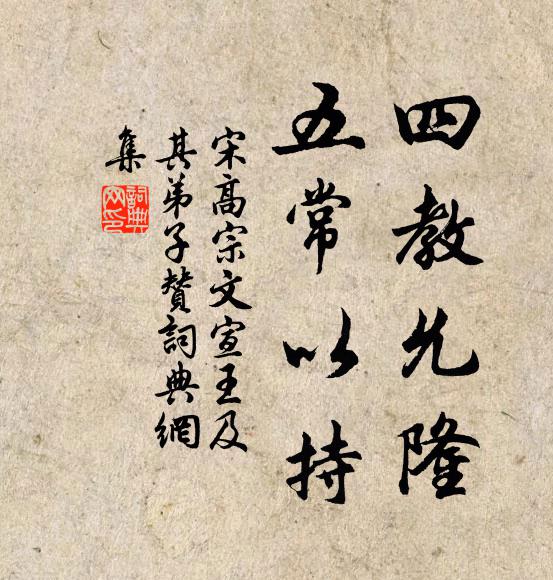 四教允隆
五常以持
宋高宗文宣王及
其弟子贊詞典網
集
詞典
网印